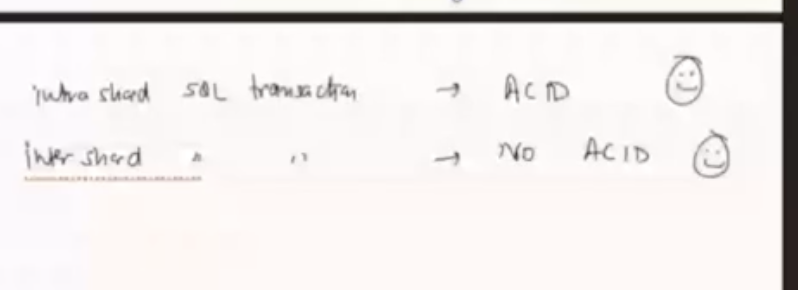 intra shard SQL transaction → ACID
inter shard " " → NO ACID